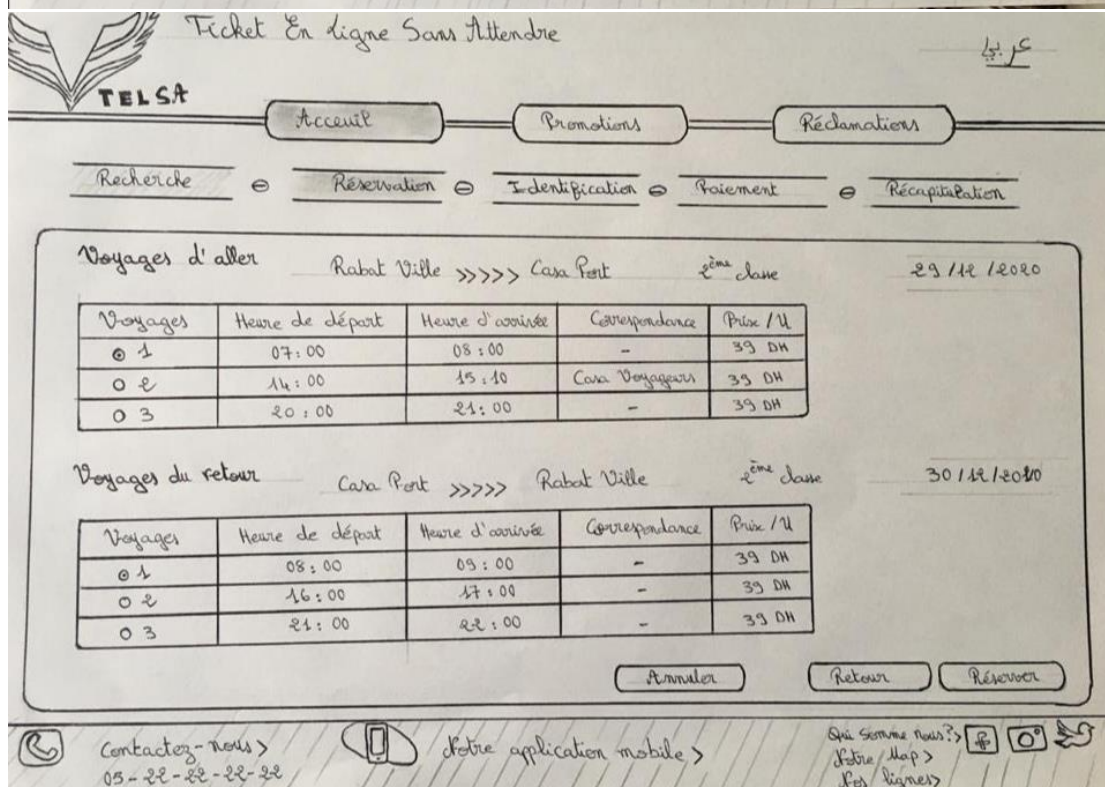 Ticket En Ligne Sans Attendre
عربية
TELSA
Acceuil Promotions Réclamations
Recherche Réservation Identification Paiement Récapitulation
Voyages d'aller Rabat Ville >>>>> Casa Port 2ème classe 29/12/2020
Voyages Heure de départ Heure d'arrivée Correspondance Prix/U
1 07:00 08:00 - 39 DH
2 14:00 15:10 Casa Voyageurs 39 DH
3 20:00 21:00 - 39 DH
Voyages du retour Casa Port >>>>> Rabat Ville 2ème classe 30/12/2020
Voyages Heure de départ Heure d'arrivée Correspondance Prix/U
1 08:00 09:00 - 39 DH
2 16:00 17:00 - 39 DH
3 21:00 22:00 - 39 DH
Annuler Retour Réserver
Contactez-nous >
05-22-22-22-22
Notre application mobile >
Qui somme nous?>
Notre Map >
Nos lignes>